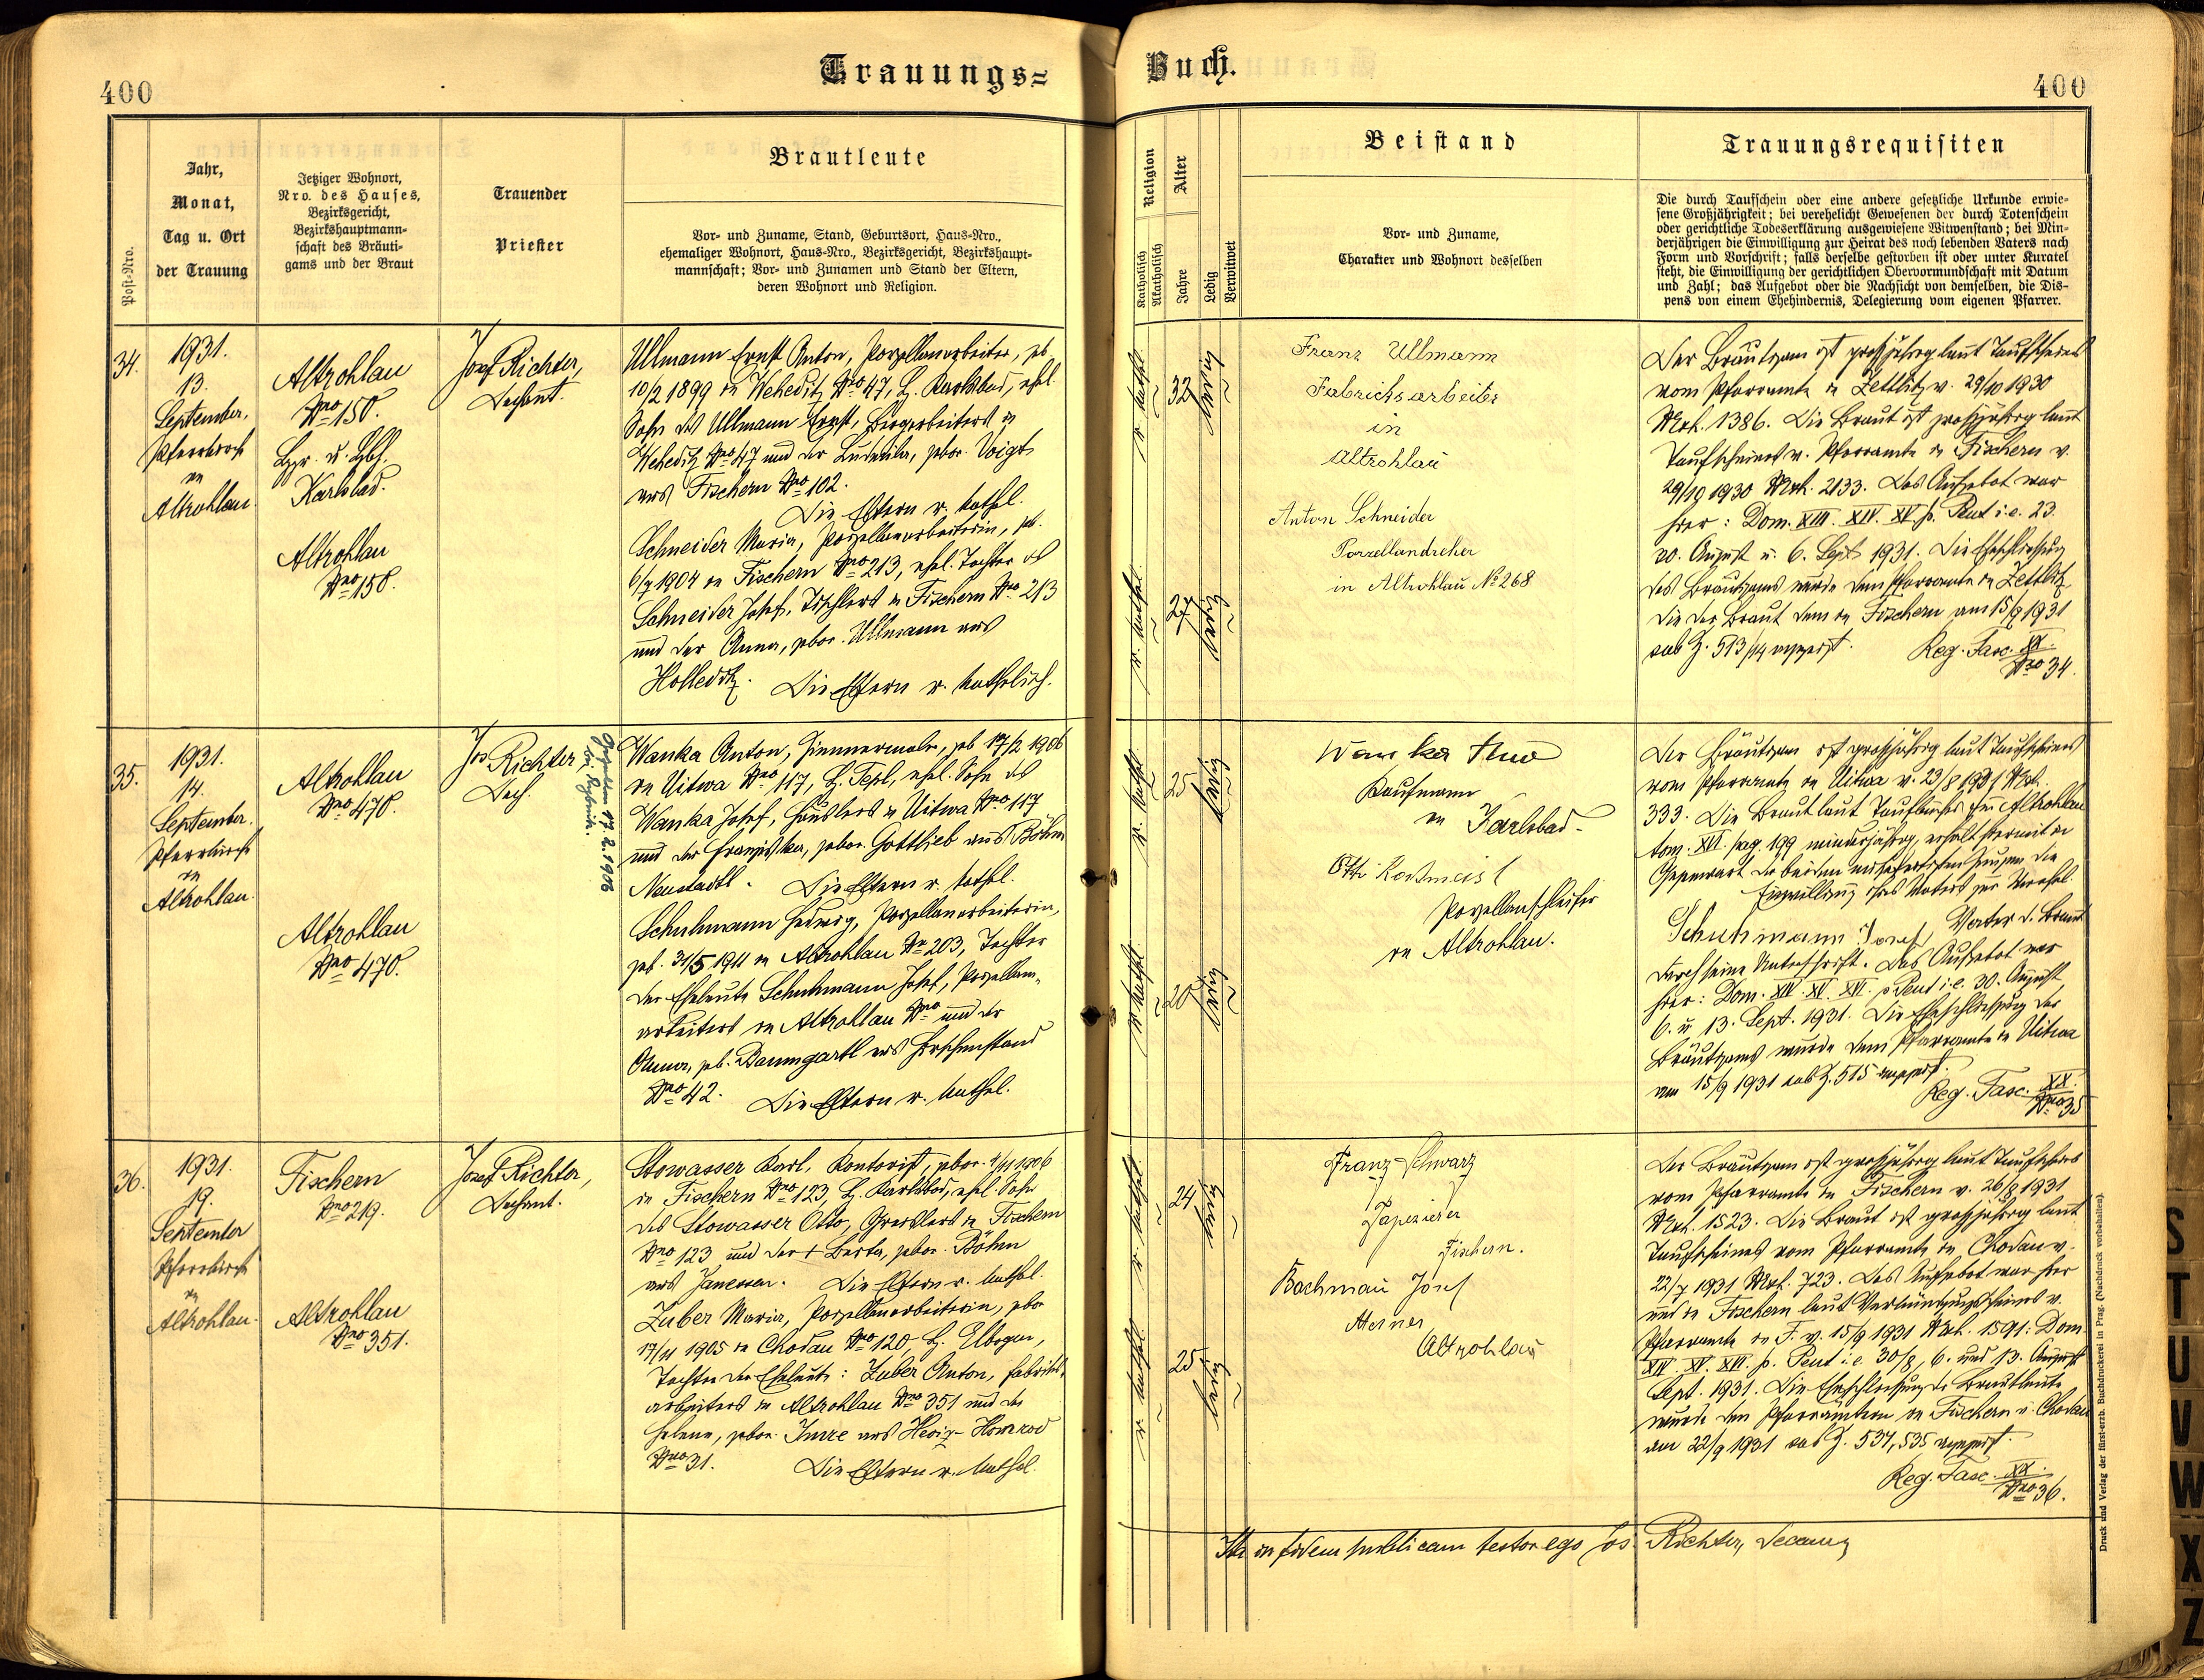 400
Trauungs=
Buch.
400
Post=Nro.
Jahr,
Monat,
Tag u. Ort
der Trauung
Jetziger Wohnort,
Nro. des Hauses,
Bezirksgericht,
Bezirkshauptmann=
schaft des Bräuti=
gams und der Braut
Trauender
Priester
Brautleute
Vor= und Zuname, Stand, Geburtsort, Haus=Nro.,
ehemaliger Wohnort, Haus=Nro., Bezirksgericht, Bezirkshaupt=
mannschaft; Vor= und Zunamen und Stand der Eltern,
deren Wohnort und Religion.
Religion
Katholisch
Akatholisch
Alter
Jahre
Ledig
Verwitwet
Beistand
Vor= und Zuname,
Charakter und Wohnort desselben
Trauungsrequisiten
Die durch Taufschein oder eine andere gesetzliche Urkunde erwie=
sene Großjährigkeit; bei verehelicht Gewesenen der durch Totenschein
oder gerichtliche Todeserklärung ausgewiesene Witwenstand; bei Min=
derjährigen die Einwilligung zur Heirat des noch lebenden Vaters nach
Form und Vorschrift; falls derselbe gestorben ist oder unter Kuratel
steht, die Einwilligung der gerichtlichen Obervormundschaft mit Datum
und Zahl; das Aufgebot oder die Nachsicht von demselben, die Dis=
pens von einem Ehehindernis, Delegierung vom eigenen Pfarrer.
34.
1931.
13.
September.
Pfarrkirche
in
Altrohlau.
Altrohlau
Nro 150.
Karlsbad.
Altrohlau
Nro 150.
Josef Richter,
Dechant.
Ullmann Ernst Anton, Porzellanarbeiter, geb.
10/2 1899 in Weheditz Nro 47, B. Karlsbad, ehel.
Sohn des Ullmann Ernst, Bergarbeiters in
Weheditz Nro 47 und der Ludmila, gebor. Voigt
aus Fischern Nro 102.
Die Eltern r. kathol.
Schneider Maria, Porzellanarbeiterin, geb.
6/7 1904 in Fischern Nro 213, ehel. Tochter des
Schneider Josef, Tischlers in Fischern Nro 213
und der Anna, gebor. Ullmann aus
Holleditz. Die Eltern r. katholisch.
r. kathol.
32
ledig
r. kathol.
27
ledig
Franz Ullmann
Fabricksarbeiter
in
Altrohlau
Anton Schneider
Porzellandreher
in Altrohlau No 268
Der Bräutigam ist großjährig laut Taufscheines
vom Pfarramte in Zettlitz v. 29/10 1930
Mrk. 1386. Die Braut ist großjährig laut
Taufscheines v. Pfarramte in Fischern v.
29/10 1930 Mrk. 2133. Das Aufgebot war
hier: Dom. XIII. XIV. XV p. Pent i.e. 23.
30. August u. 6. Sept 1931. Die Eheschließung
des Bräutigams wurde dem Pfarramte in Zettlitz
die der Braut dem in Fischern am 15/9 1931
sub Z. 513/14 angezeigt.
Reg. Fasc. XX.
Nro 34.
35.
1931.
14.
September.
Pfarrkirche
in
Altrohlau.
Altrohlau
Nro 470.
Altrohlau
Nro 470.
Jos Richter
Dech.
17.2.1906
Wanka Anton, Zimmermaler, geb 17/2 1906
in Uitwa Nro 117, B. Tepl, ehel. Sohn des
Wanka Josef, Häuslers in Uitwa Nro 117
und der Franziska, gebor. Gottlieb aus Böhm
Neustadtl. Die Eltern r. kathol.
Schuhmann Hedwig, Porzellanarbeiterin,
geb. 31/5 1911 in Altrohlau Nro 203, Tochter
der Eheleute Schuhmann Josef, Porzellan=
arbeiters in Altrohlau Nro und der
Anna, geb. Baumgartl aus Hirschenstand
Nro 42. Die Eltern r. kathol.
r. kathol.
25
ledig
r. kathol.
20
ledig
Wanka
Kaufmann
in Karlsbad.
Otto
Porzellanschleifer
in Altrohlau.
Der Bräutigam ist großjährig laut Taufscheines
vom Pfarramte in Uitwa v. 29/8 1931 Mrk.
333. Die Braut laut Taufbuches in Altrohlau
tom. XVI. pag. 199 minderjährig, erhält hiermit in
Gegenwart der beiden mitgefertigten Zeugen die
Einwilligung ihres Vaters zur Verehel.
Schuhmann Josef, Vater d. Braut
durch seine Unterschrift. Das Aufgebot war
hier: Dom. XIV. XV. XVI. p Pent i.e. 30. August,
6. u 13. Sept. 1931. Die Eheschließung des
Bräutigams wurde dem Pfarramte in Uitwa
am 15/9 1931 sub Z. 515 angezeigt.
Reg. Fasc. XX.
Nro 35
36.
1931.
19.
September
Pfarrkirche
in
Altrohlau.
Fischern
Nro 219.
Altrohlau
Nro 351.
Josef Richter,
Dechant.
Stowasser Karl, Kontorist, gebor. 4/11 1906
in Fischern Nro 123, B. Karlsbad, ehel. Sohn
des Stowasser Otto, Greislers in Fischern
Nro 123 und der + Berta, gebor. Böhm
aus Janessen. Die Eltern r. kathol.
Zuber Maria, Porzellanarbeiterin, gebor
17/11 1905 in Chodau Nro 120, B. Elbogen,
Tochter der Eheleute: Zuber Anton, Fabriks=
arbeiters in Altrohlau Nro 351 und der
Helena, gebor.
Nro 31. Die Eltern r. kathol.
r. kathol.
24
ledig
r. kathol.
25
ledig
Franz Schwarz
Tapezierer
Fischern.
Bachmann Josef
Altrohlau
Der Bräutigam ist großjährig laut Taufscheines
vom Pfarramte in Fischern v. 26/8 1931
Mrk. 1523. Die Braut ist großjährig laut
Taufscheines vom Pfarramte in Chodau v.
22/7 1931 Mrk. 723. Das Aufgebot war hier
und in Fischern laut Verkündigungsscheines v.
Pfarramte in F. v. 15/9 1931 Mrk. 1591: Dom
XIV. XV. XVI. p. Pent i.e. 30/8, 6. und 13. August
Sept. 1931. Die Eheschließung der Brautleute
wurde den Pfarrämtern in Fischern u. Chodau
am 22/9 1931 sub Z. 534, 535 angezeigt.
Reg. Fasc. XX.
Nro 36.
Ita in fidem publicam testor ego Jos. Richter, Decanus
Druck und Verlag der fürst-erzb. Buchdruckerei in Prag. (Nachdruck vorbehalten).
S
T
U
V
W
X
Z